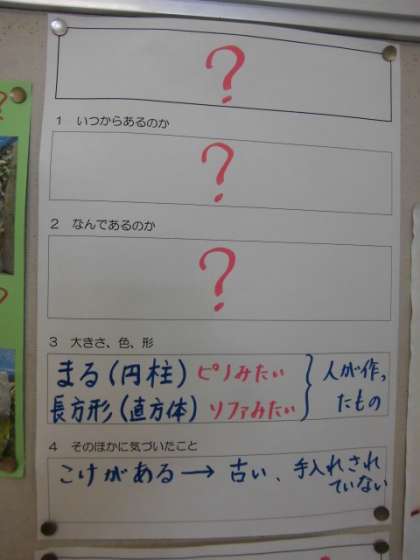 ?
1 いつからあるのか
?
2 なんであるのか
?
3 大きさ、色、形
まる(円柱)ピノみたい
長方形(直方体)ソファみたい
人が作っ
たもの
4 そのほかに気づいたこと
こけがある→古い、手入れされ
ていない
?
?